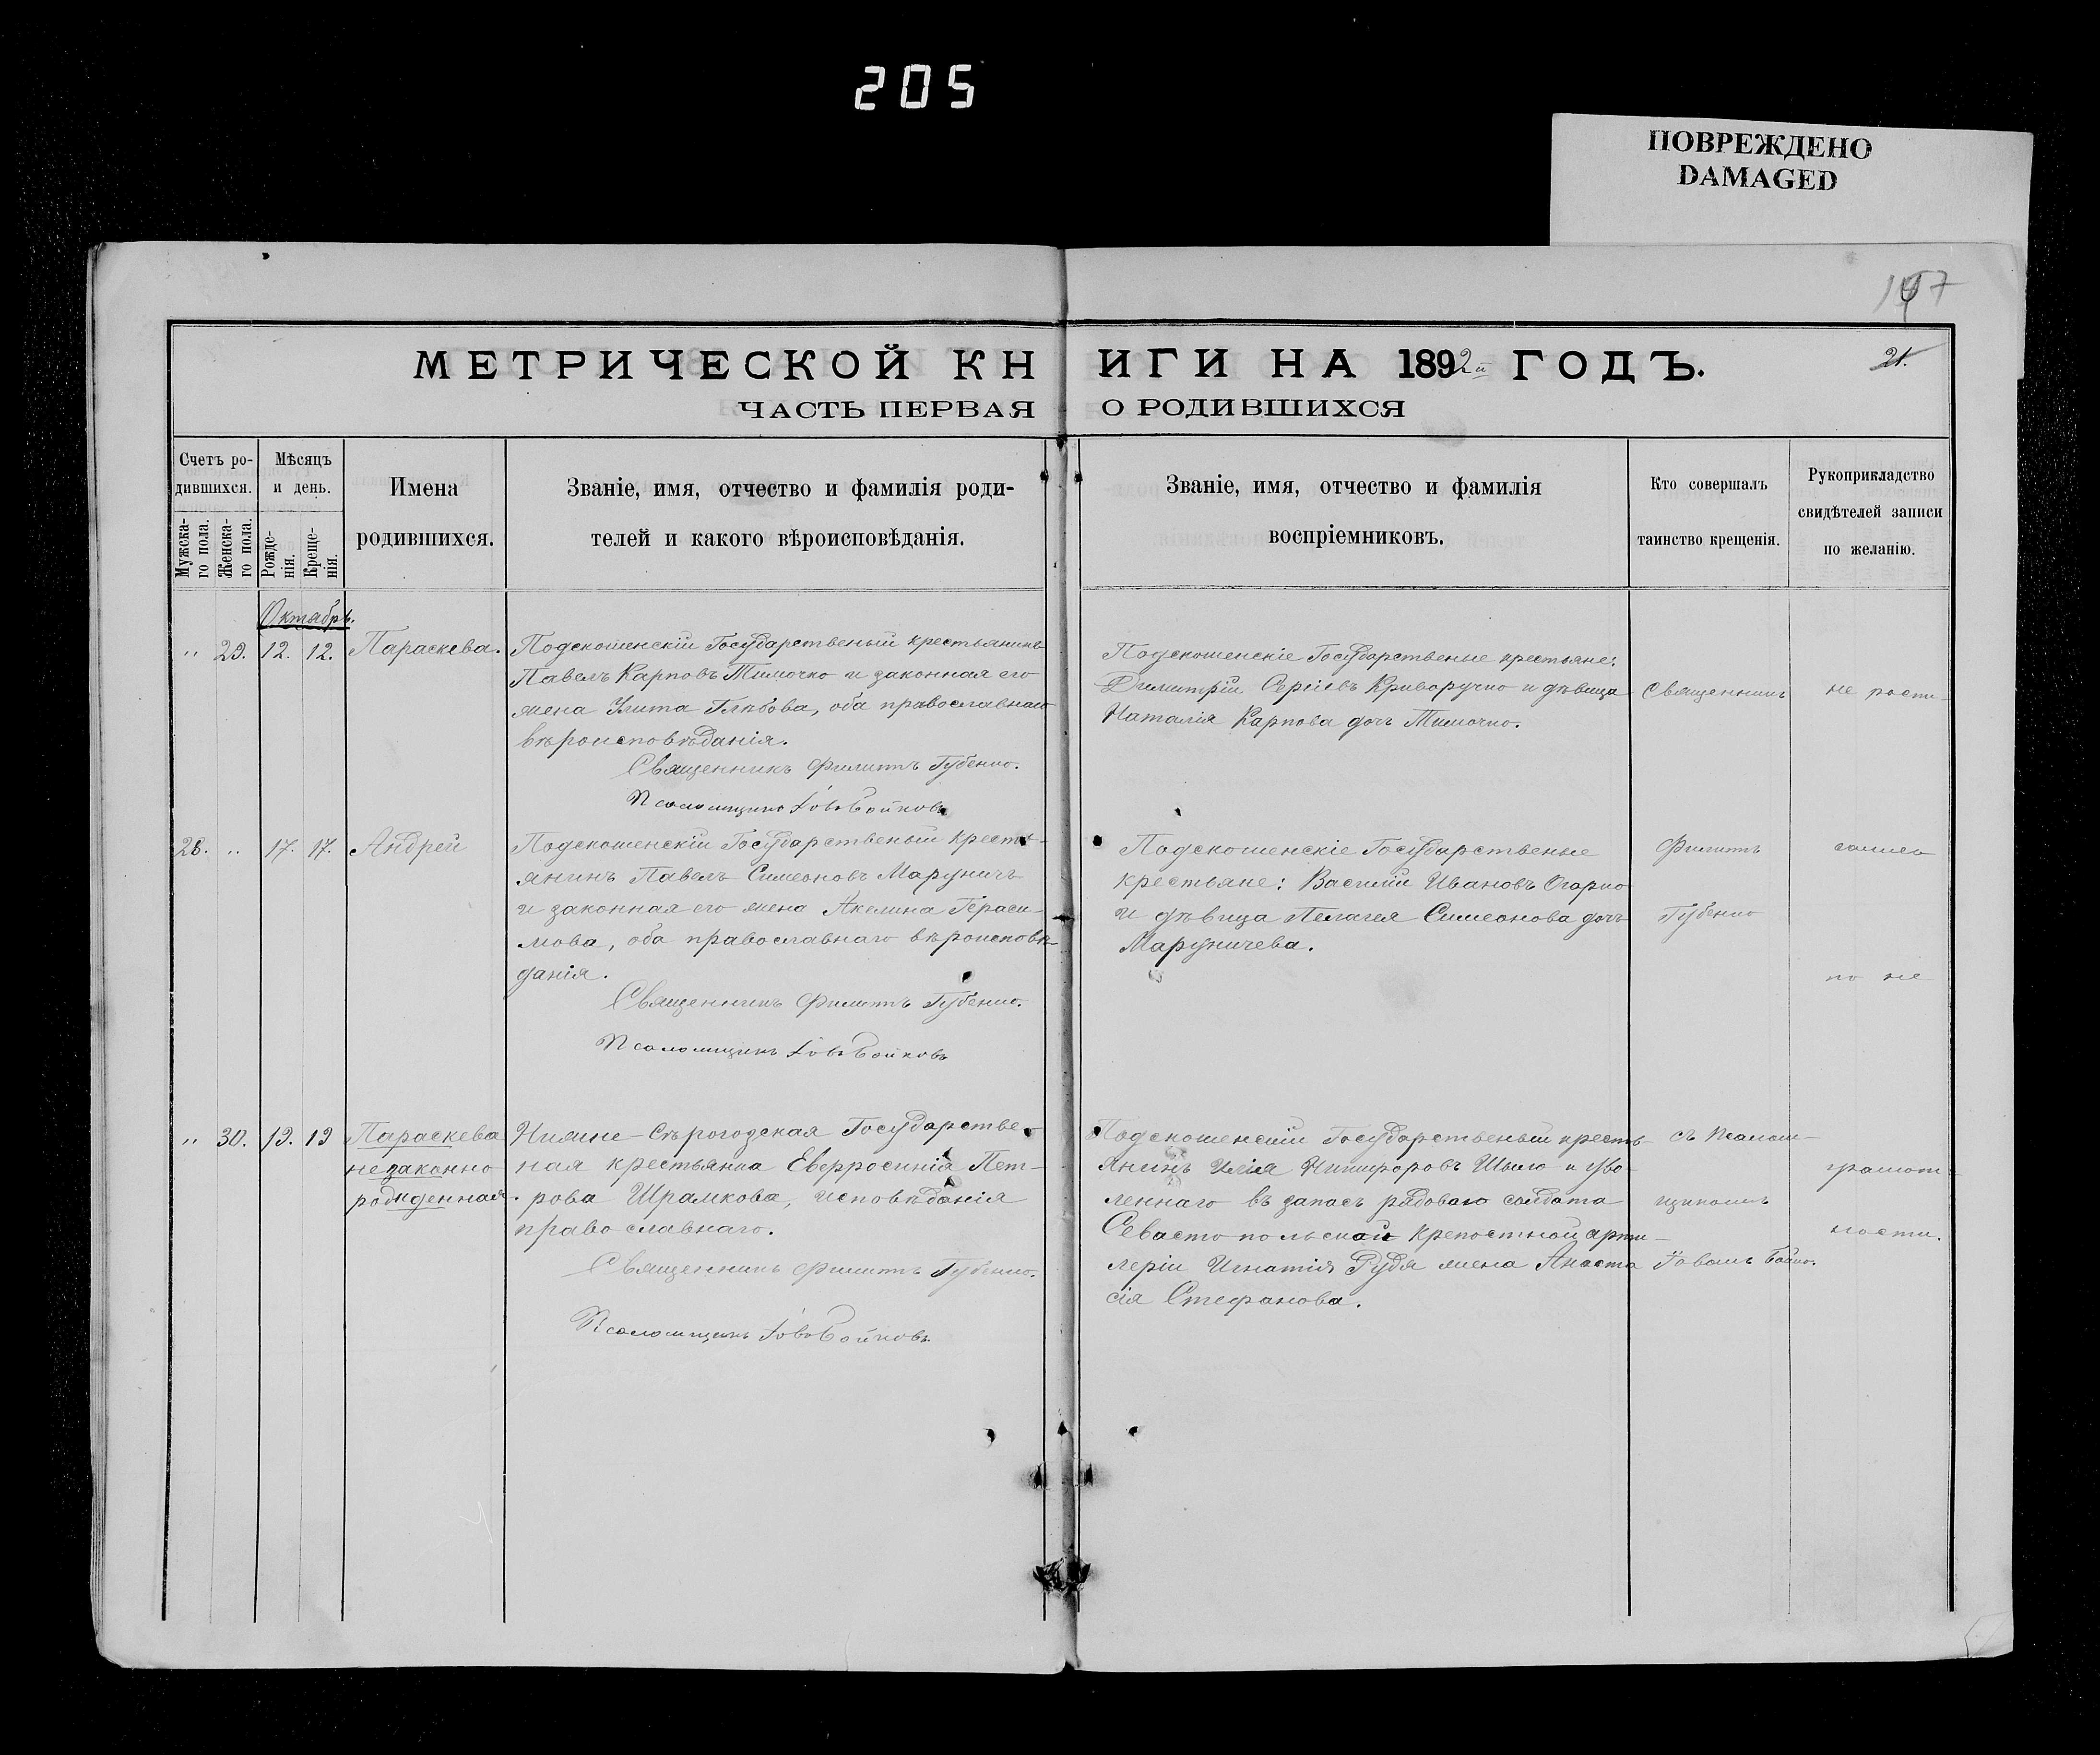 205
ПОВРЕЖДЕНО
DAMAGED
МЕТРИЧЕСКОЙ КНИГИ НА 1892й ГОДЪ.
21.
ЧАСТЬ ПЕРВАЯ О РОДИВШИХСЯ
Счетъ ро-
дившихся.
Мужска-
го пола.
Женска-
го пола.
Мѣсяцъ
и день.
Рожде-
нія.
Креще-
нія.
Имена
родившихся.
Званіе, имя, отчество и фамилія роди-
телей и какого вѣроисповѣданія.
Званіе, имя, отчество и фамилія
воспріемниковъ.
Кто совершалъ
таинство крещенія.
Рукоприкладство
свидѣтелей записи
по желанію.
Октябрь.
" 29. 12. 12. Параскева.
Подскошенскій Государственый крестьянинъ
Павелъ Карповъ Тимочко и законная его
жена Улита Глѣбова, оба православнаго
вѣроисповѣданія.
Священникъ Филиппъ Губенко.
Псаломщикъ Іовъ Бойковъ
Подскошенскіе Государственые крестьяне:
Димитрій Сергіевъ Криворучко и дѣвица
Наталія Карпова дочь Тимочко.
28. " 17. 17. Андрей
Подскошенскій Государственый кресть-
янинъ Павелъ Симеоновъ Маруничъ
и законная его жена Акелина Гераси-
мова, оба православнаго вѣроисповѣ-
данія.
Священникъ Филиппъ Губенко.
Псаломщикъ Іовъ Бойковъ
Подскошенскіе Государственые
крестьяне: Василій Ивановъ Огарко
и дѣвица Пелагея Симеонова дочь
Маруничева.
" 30. 19. 19 Параскева
незаконно
рожденная.
Нижне-Сѣрогозская Государстве-
ная крестьянка Евфросинія Пет-
рова Шрамкова, исповѣданія
православнаго.
Священникъ Филиппъ Губенко.
Псаломщикъ Іовъ Бойковъ.
Подскошенскій Государственый кресть-
янинъ Илія Никифоровъ и уво-
леннаго въ запасъ рядоваго солдата
Севастопольской крепостной арти-
леріи Игнатія Рудя жена Анаста
сія Стефанова.
Священникъ
Филиппъ
Губенко
съ Псалом-
щикомъ
Іовомъ Бойко.
по не
грамот
ности.